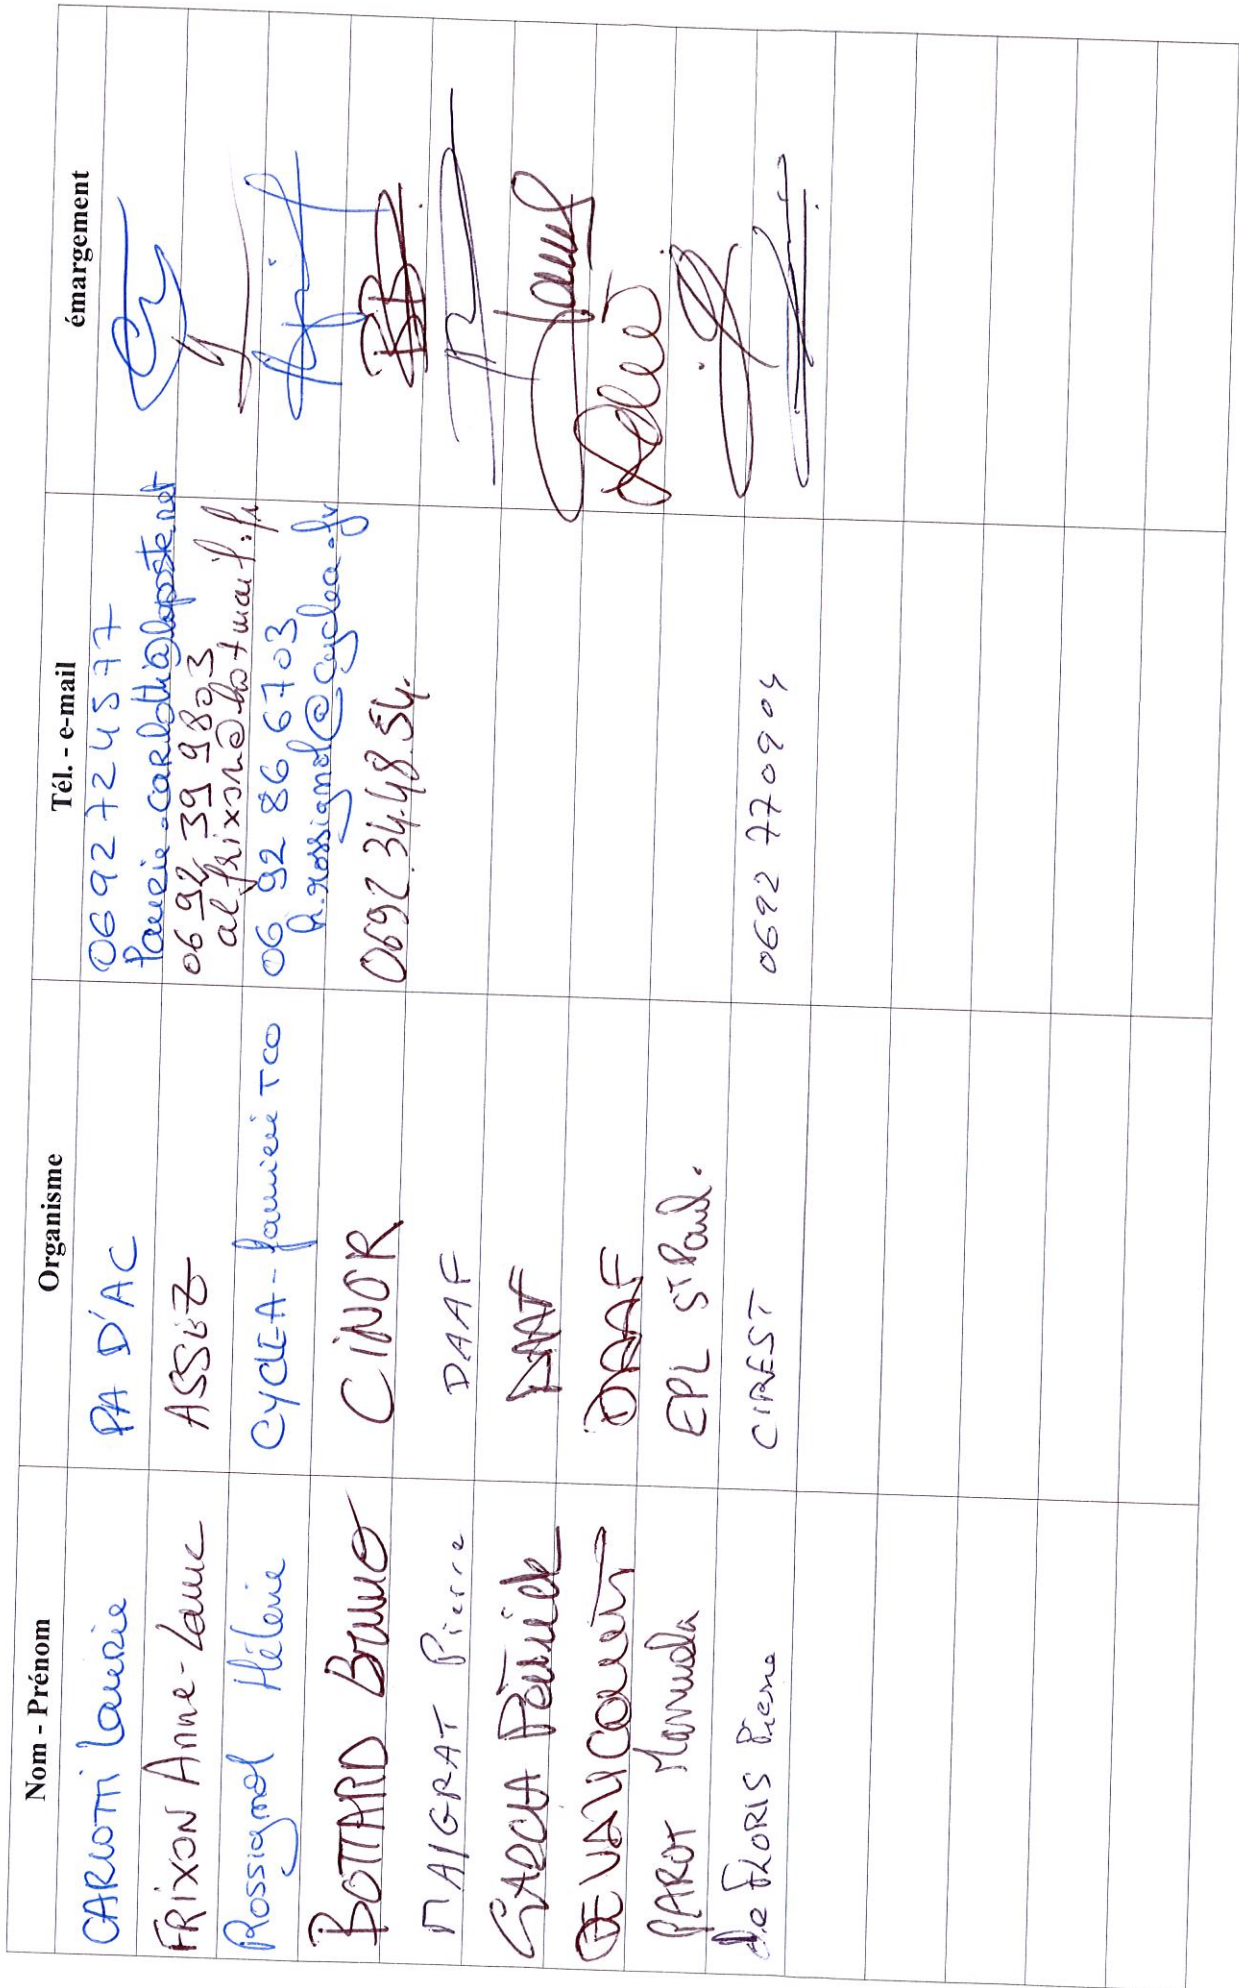 Nom - Prénom Organisme Tél. - e-mail émargement
CARLOTTI Laurie PA D'AC 0692724577
laurie.carlotti@laposte.net
FRIXON Anne-Laure ASSEZ 06 92 39 98 03
alfrixon@hotmail.fr
Rossignol Hélène CYCLEA - fourrière TCO 06 92 86 67 03
h.rossignol@cyclea.fr
BOTTARD Bruno CINOR 0692.34.48.54.
MAIGRAT Pierre DAAF
GARCIA Patrick DAAF
DAAF
PAROT Manuela EPL St Paul.
de FLORIS Pierre CIREST 0692 770904